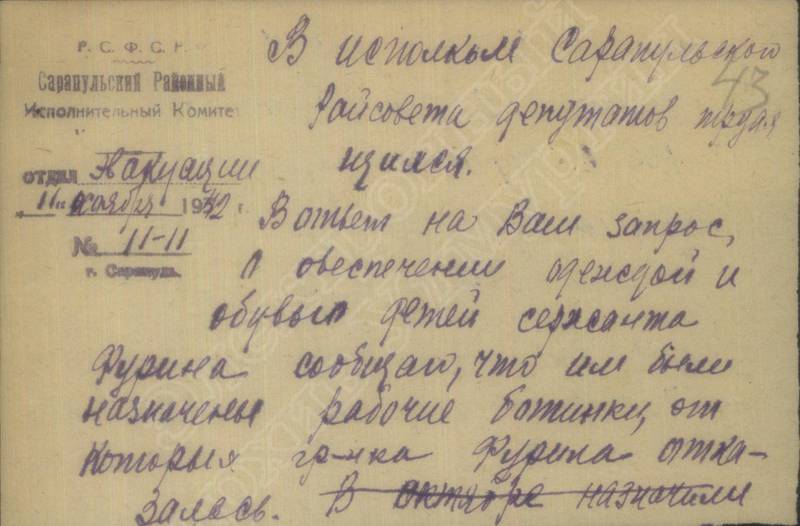 Р. С. Ф. С. Р.
Сарапульский Районный
Исполнительный Комитет
отдел Эвакуации
"11" ноября 1942 г.
№ 11-11
г. Сарапул.
43
В исполком Сарапульского
Райсовета депутатов трудя
щихся.
В ответ на Ваш запрос,
о обеспечении одеждой и
обувью детей сержанта
Фурина сообщаю, что им были
назначены рабочие ботинки, от
которых гр-нка Фурина отка-
залась. В октябре назначили